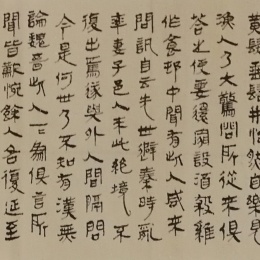 黃髮垂髫並怡然自樂見
漁人乃大驚問所從来俱
答之便要還家設酒殺雞
作食邨中聞有此人咸来
問訊自云先世避秦時亂
率妻子邑人来此絶境不
復出焉遂與外人間隔問
今是何世乃不知有漢無
論魏晉此人一一為俱言所
聞皆歎惋餘人各復延至